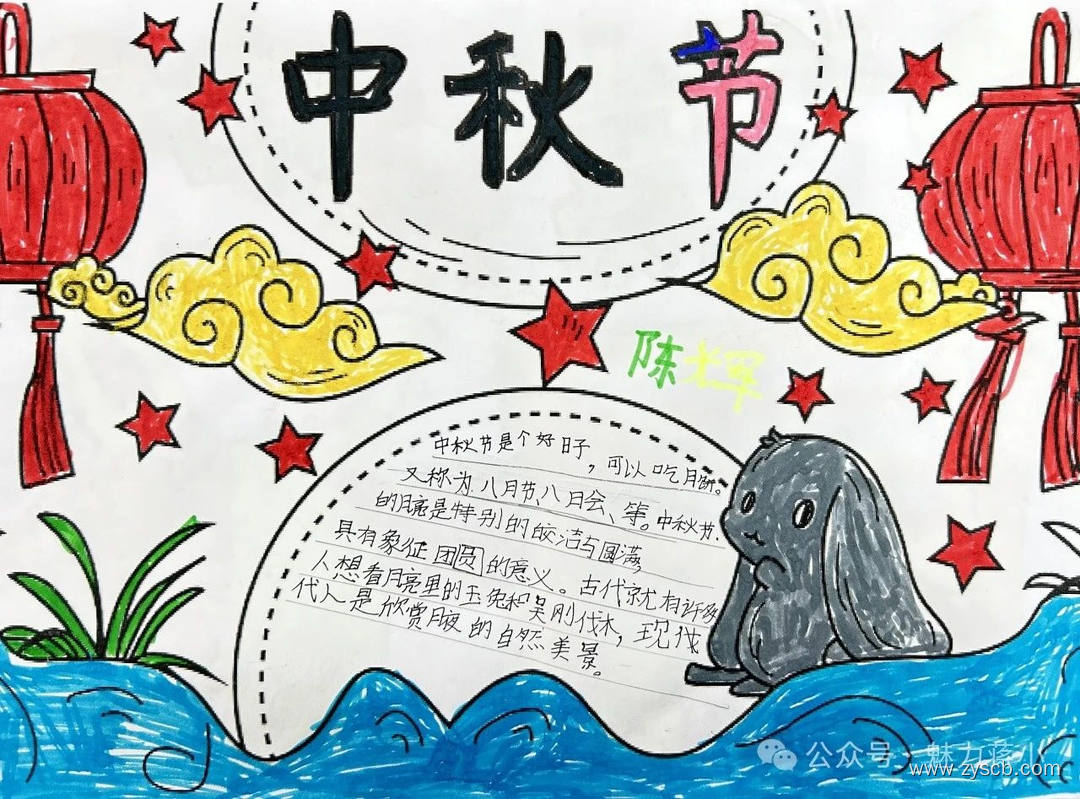 中秋节
陈辉
中秋节是个好日子，可以吃月饼。
又称为八月节、八日会、等。中秋节.
的月亮是特别的皎洁与圆满
具有象征团圆的意义。古代就有许多
人想看月亮里的玉兔和吴刚伐木，现
代人是欣赏月夜的自然美景。
公众号·魅力蒋小
www.zyscb.com